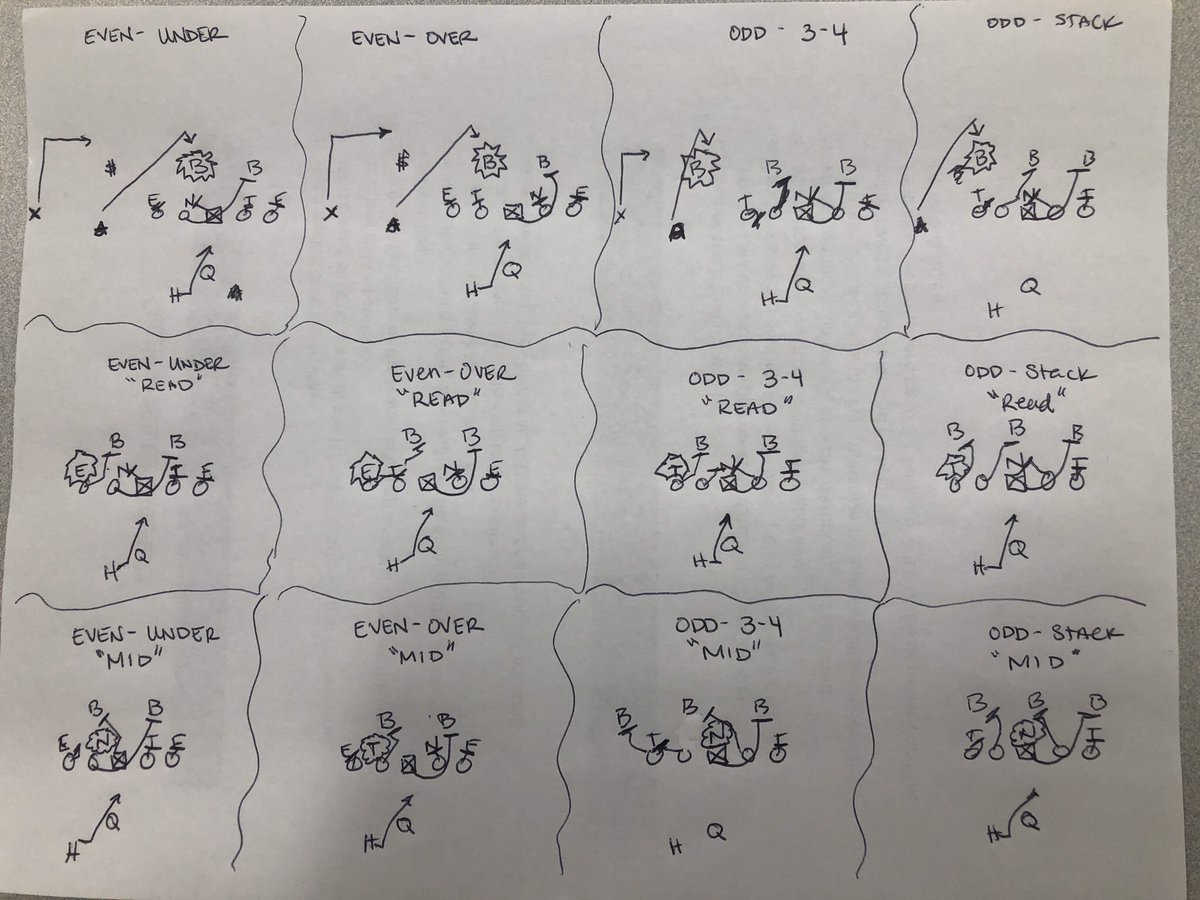 EVEN- UNDER
EVEN- OVER
ODD - 3-4
ODD - STACK
X
$
A
E
N
B
B
T
E
H
Q
A
X
$
A
E
T
B
B
N
E
H
Q
X
A
B
T
B
N
B
E
H
Q
A
B
T
B
N
B
E
H
Q
EVEN-UNDER
"READ"
EVEN-OVER
"READ"
ODD - 3-4
"READ"
ODD-STACK
"Read"
E
B
N
B
T
E
H
Q
E
T
B
N
B
E
H
Q
T
B
N
B
E
H
Q
B
T
B
N
B
E
H
Q
EVEN- UNDER
"MID"
EVEN-OVER
"MID"
ODD-3-4
"MID"
ODD-STACK
"MID"
E
B
N
B
T
E
H
Q
E
T
B
N
B
E
H
Q
B
T
B
N
B
E
H
Q
B
T
B
N
B
E
H
Q